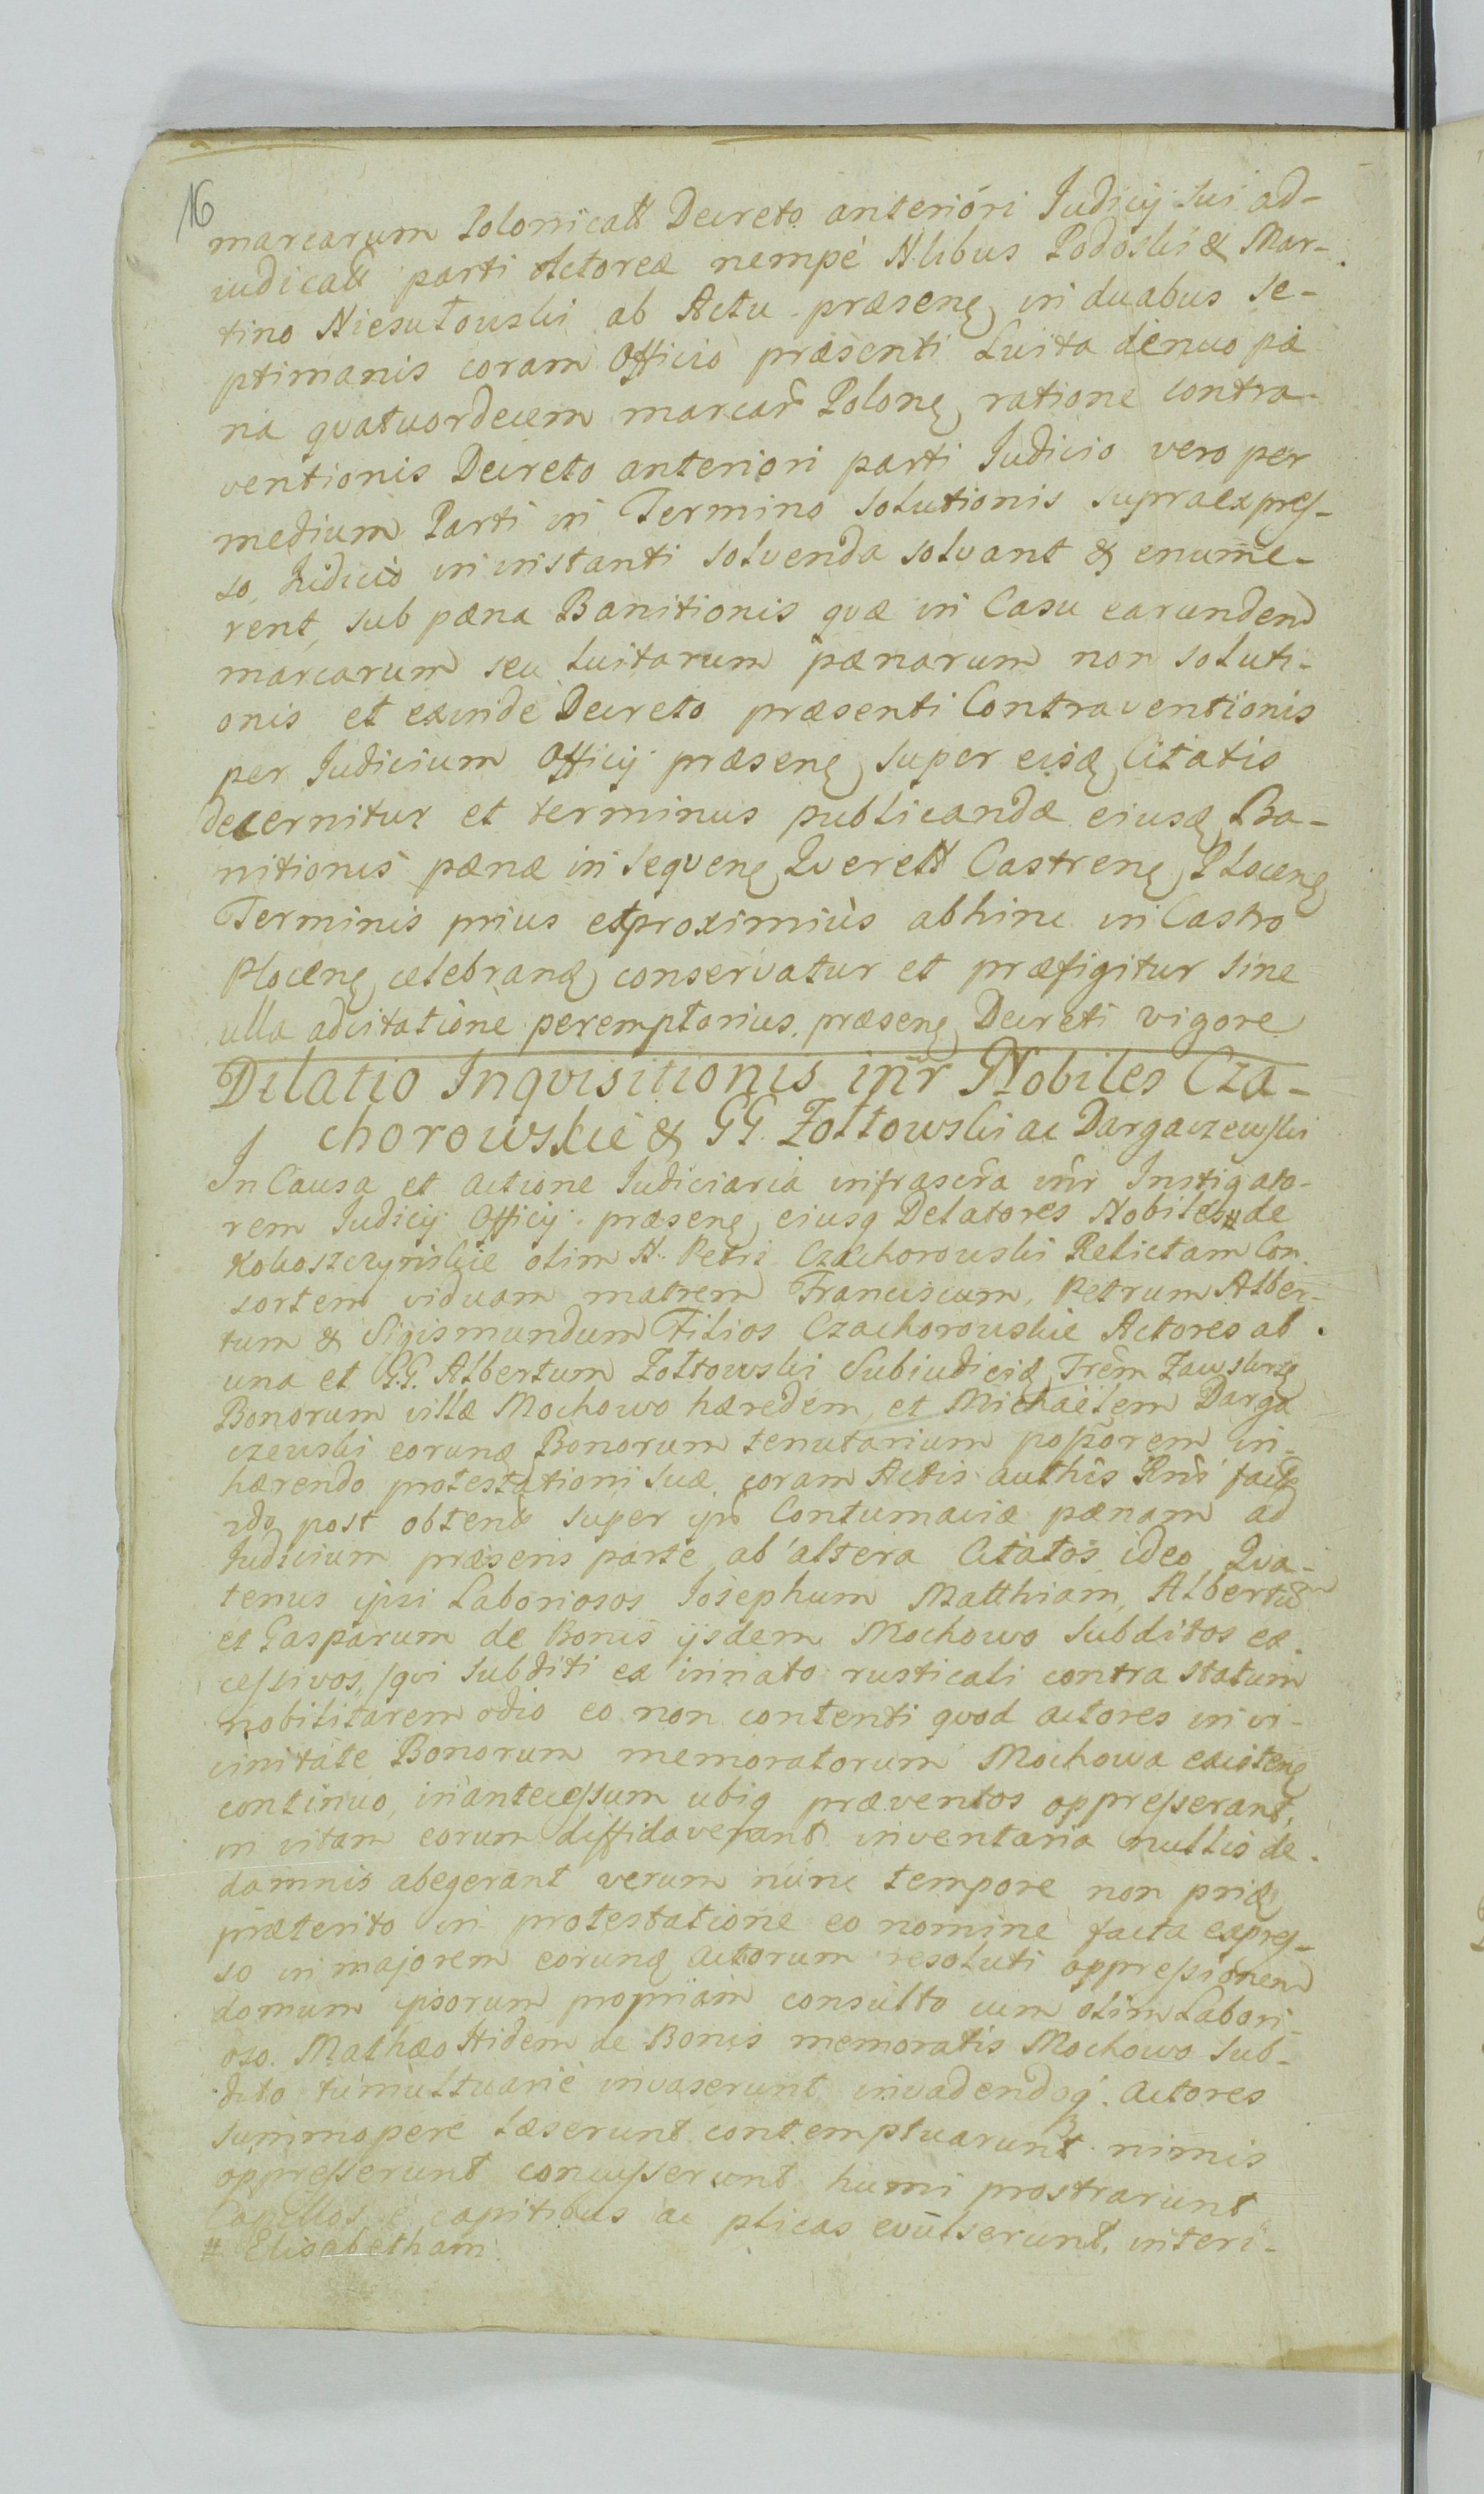 16
marcarum Polonicalt Decreto anteriori Judicij sui ad-
iudicalt parti Actoreæ nempè Nlibus Podoski & Mar-
tino Niesułowski ab Actu præsenę in duabus se-
ptimanis coram Officio præsenti Luita denuo pæ
na quatuordecem marcar Polonę ratione contra-
ventionis Decreto anteriori parti Judicio vero per
medium Parti in Termino solutionis supraexpres-
so, Judicio in instanti solvenda solvant & enume-
rent, sub pæna Banitionis quæ in Casu earundem
marcarum seu luitarum pænarum non soluti-
onis et exinde Decreto præsenti Contraventionis
per Judicium Officij præsenę super eisdę Citatis
decernitur et terminus publicandæ eiusdę Ba-
nitionis pænæ in sequenę Querelt Castrenę Plocenę
Terminis prius et proximiùs abhinc in Castro
Plocenę celebrandę conservatur et præfigitur sine
ulla adcitatione peremptorius præsenę Decreti vigore
Dilatio Inquisitionis inr Nobiles Cza-
chorowskie & GG. Żołtowski ac Dargaczewski
In Causa et actione Judiciaria infrascra inr Instigato-
rem Judicij Officij præsenę eiusq Delatores Nobiles # de
Kokoszczynskie olim N. Petri Czachorowski Relictam Con
sortem viduam matrem Franciscum, Petrum Alber-
tum & Sigismundum Filios Czachorowskie Actores ab
una et GG. Albertum Żołtowski Subiudicę Trem Zawskrzę
Bonorum villæ Mochowo hæredem, et Michaëlem Darga
czewski eorundę Bonorum tenutarium possorem in-
hærendo protestationi suæ coram Actis authcis factę
post obtentę super ipis Contumaciæ pænam ad
Judicium præsens parte ab altera Citatos ideo, Qua-
tenus ipsi Laboriosos Josephum Matthiam, Albertum
et Gasparum de Bonis ijsdem Mochowo Subditos ex
cessivos, qui subditi ex innato rusticali contra statum
nobilitarem odio eo non contenti quod actores in vi-
cinitate Bonorum memoratorum Mochowa existenę
continuo, in antecessum ubiq præventos oppresserant,
in vitam eorum diffidaverant inventaria nullis de
damnis abegerant verum nunc tempore non pridę
præterito in protestatione eo nomine facta expres-
so in majorem eorundę actorum resoluti oppressionem
domum ipsorum propriam consulto cum olim Labori-
oso Mathæo Hidem de Bonis memoratis Mochowo Sub-
dito tumultuariè invaserunt invadendoq actores
summopere læserunt contemptuarunt nimis
oppresserunt concusserunt humi prostrarunt
Capillos è capitibus ac plicas evulserunt, interi-
# Elisabetham